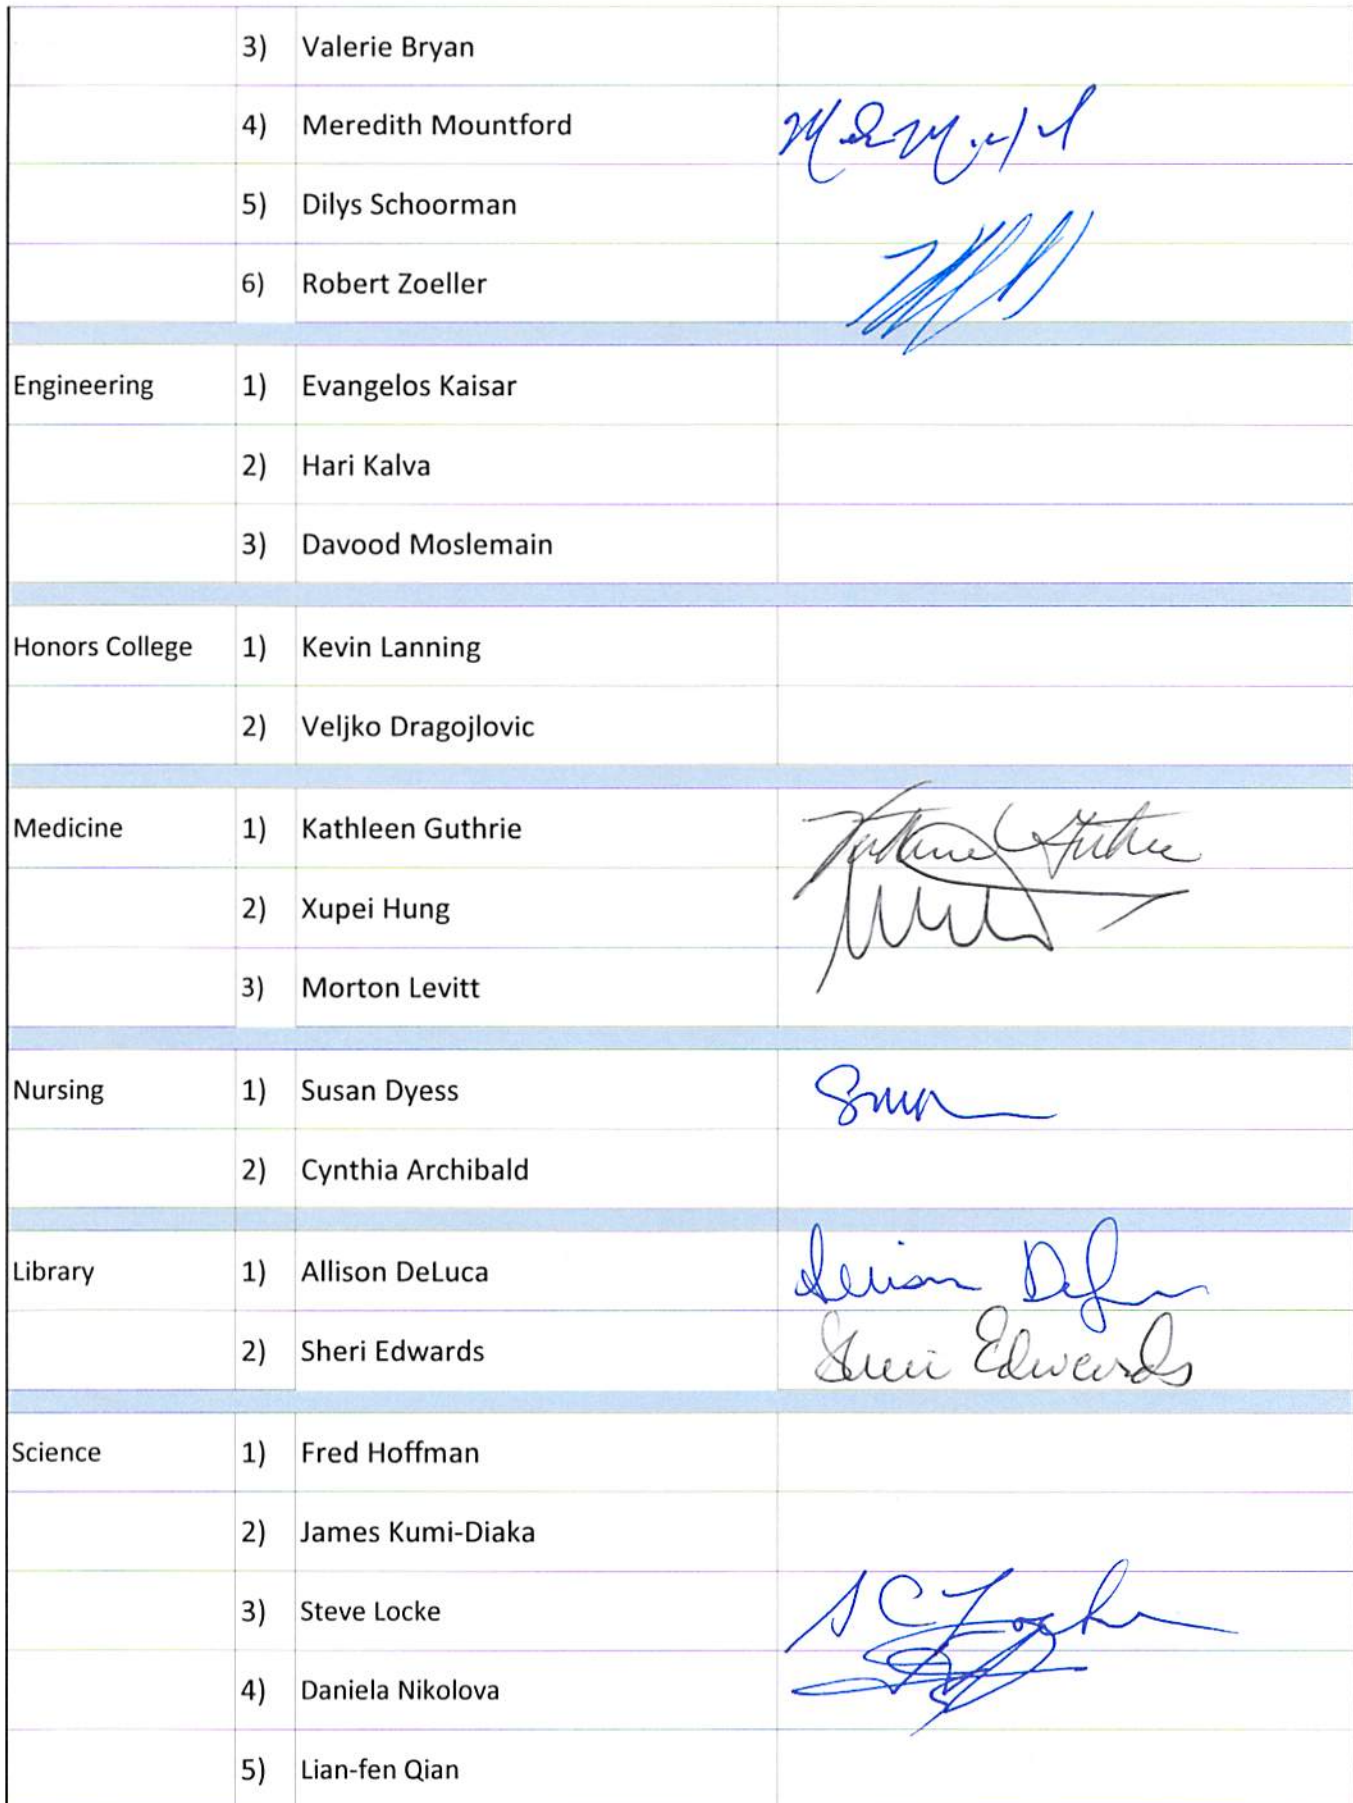 3) Valerie Bryan
4) Meredith Mountford
5) Dilys Schoorman
6) Robert Zoeller
Engineering 1) Evangelos Kaisar
2) Hari Kalva
3) Davood Moslemain
Honors College 1) Kevin Lanning
2) Veljko Dragojlovic
Medicine 1) Kathleen Guthrie
2) Xupei Hung
3) Morton Levitt
Nursing 1) Susan Dyess
2) Cynthia Archibald
Library 1) Allison DeLuca
2) Sheri Edwards Sheri Edwards
Science 1) Fred Hoffman
2) James Kumi-Diaka
3) Steve Locke S C Locke
4) Daniela Nikolova
5) Lian-fen Qian